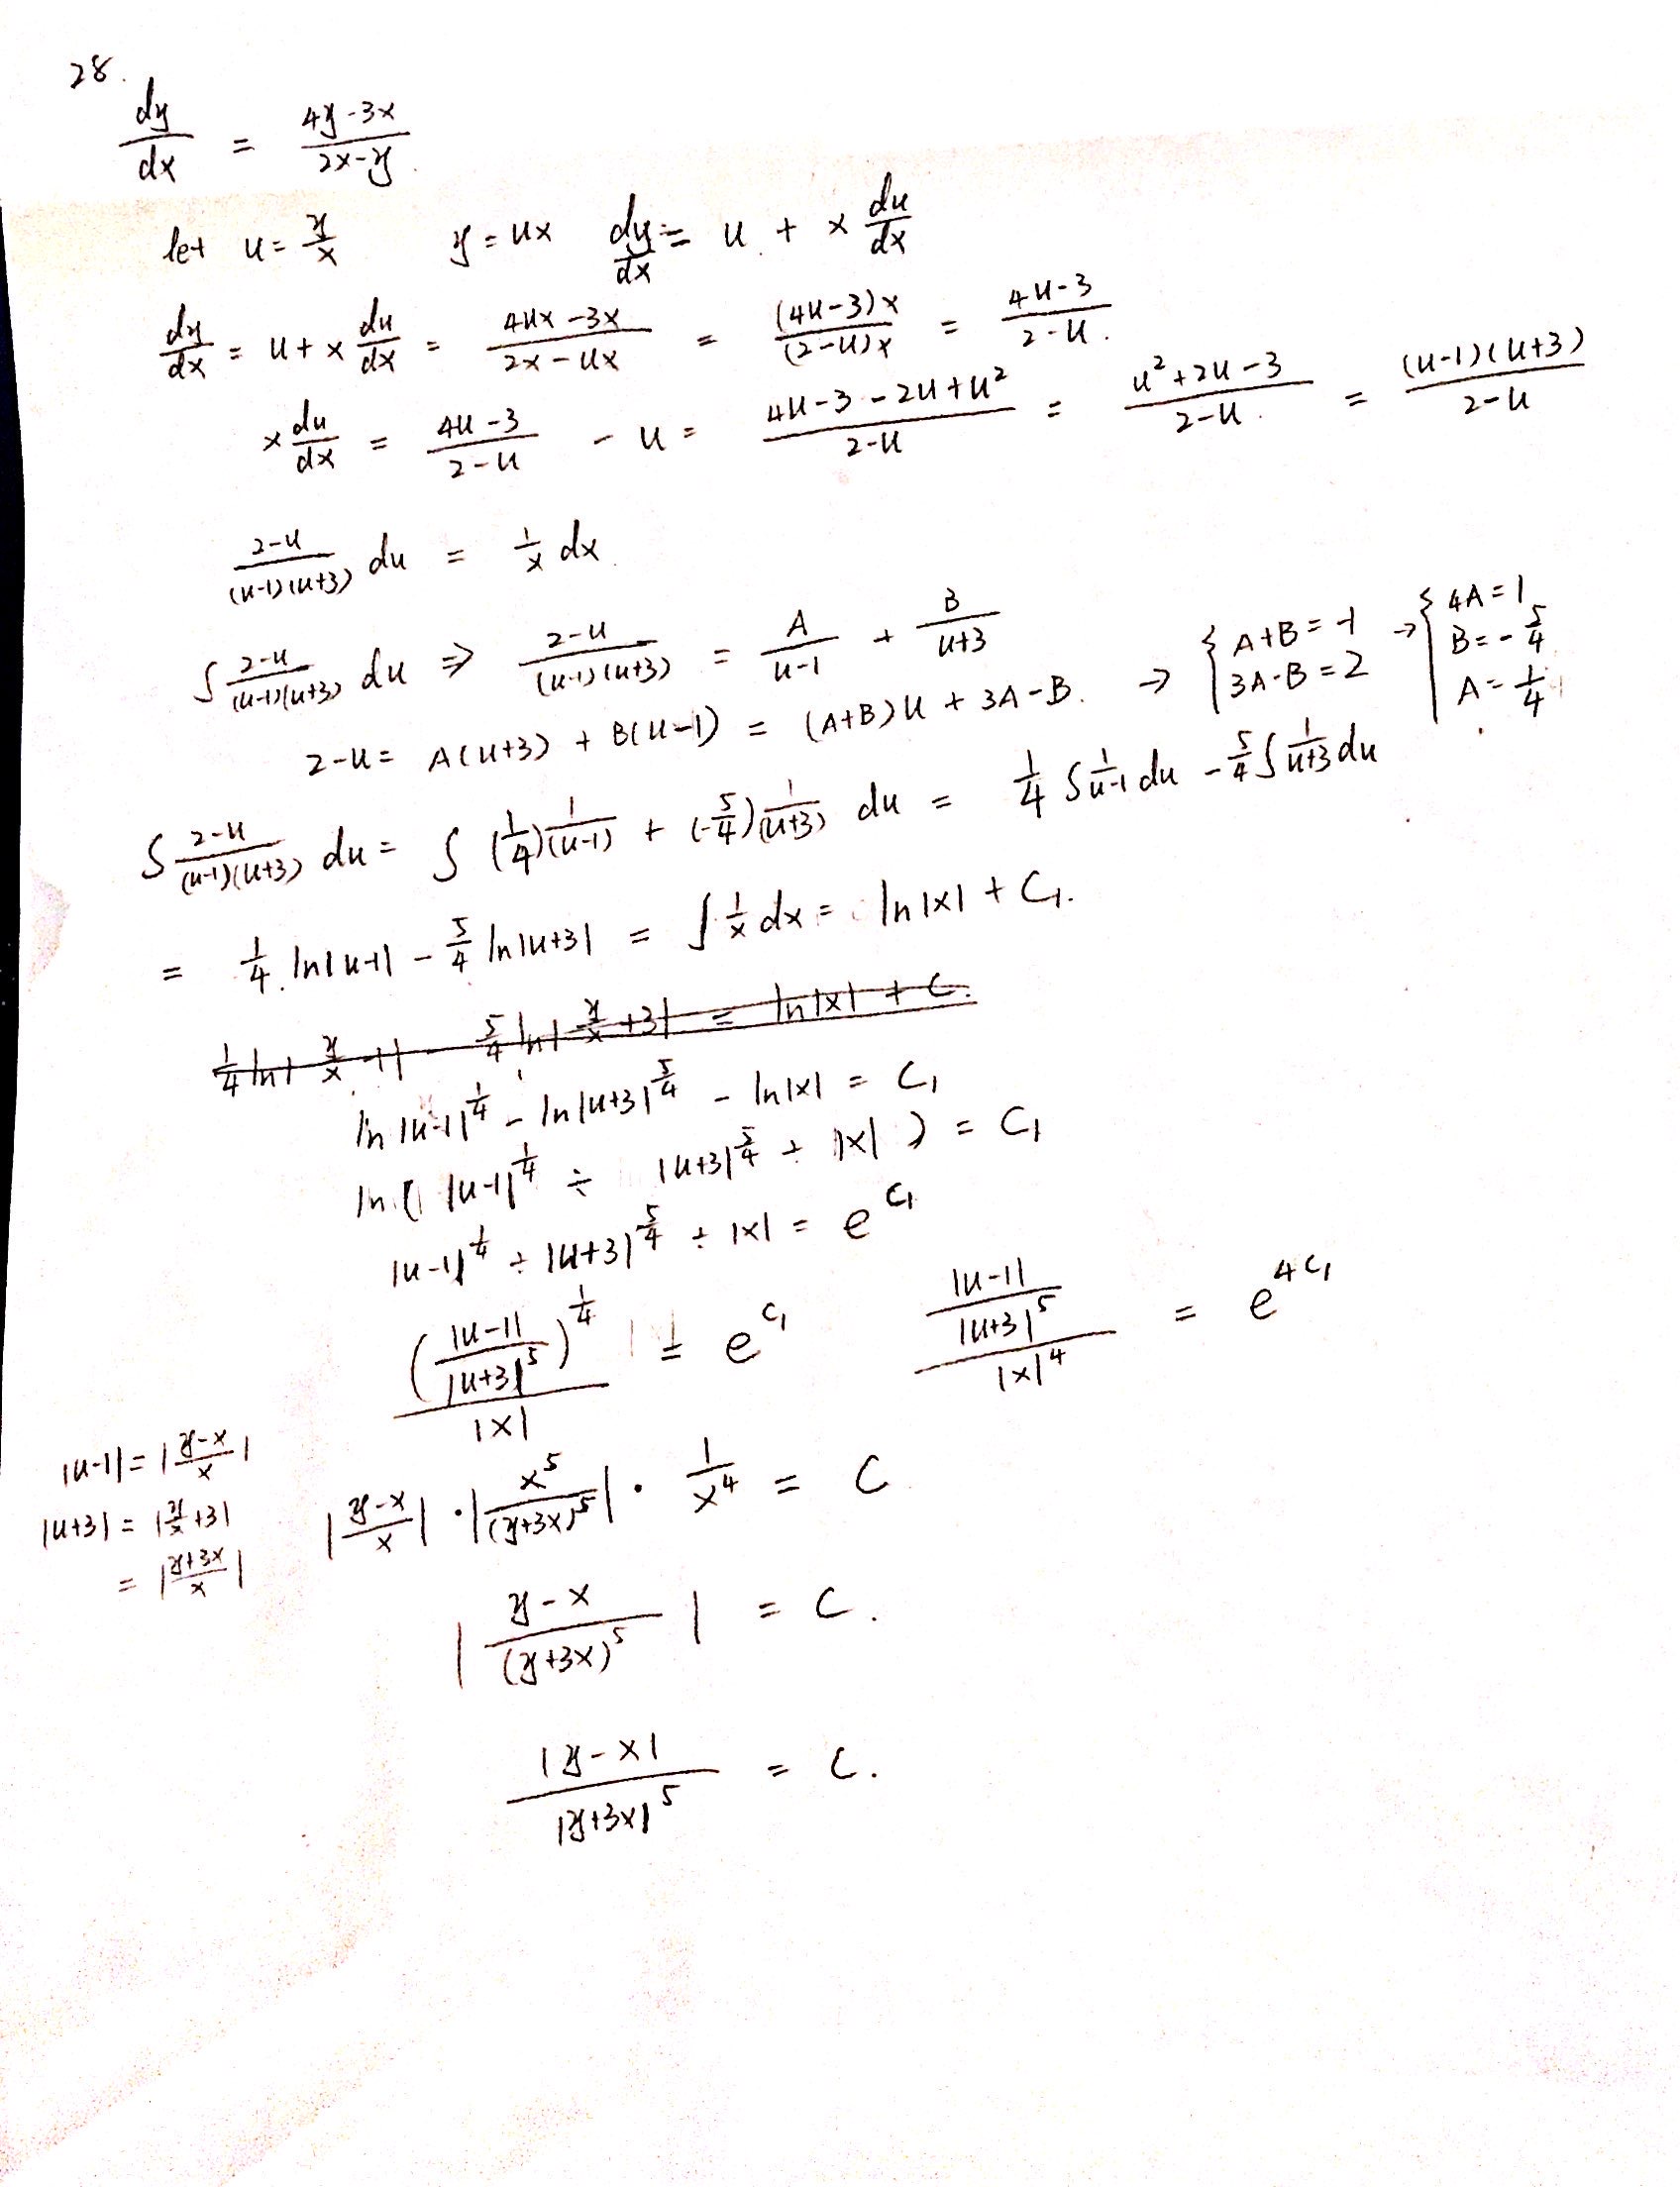 28.
dy/dx = (4y-3x)/(2x-y).
let u = y/x y = ux dy/dx = u + x du/dx
dy/dx = u + x du/dx = (4ux-3x)/(2x-ux) = ((4u-3)x)/((2-u)x) = (4u-3)/(2-u).
x du/dx = (4u-3)/(2-u) - u = (4u-3-2u+u²)/(2-u) = (u²+2u-3)/(2-u). = ((u-1)(u+3))/(2-u)
(2-u)/((u-1)(u+3)) du = 1/x dx
∫ (2-u)/((u-1)(u+3)) du ⇒ (2-u)/((u-1)(u+3)) = A/(u-1) + B/(u+3)
2-u = A(u+3) + B(u-1) = (A+B)u + 3A-B. → { A+B=-1 3A-B=2 → { 4A=1 B=-5/4 A=1/4
∫ (2-u)/((u-1)(u+3)) du = ∫ (1/4) 1/(u-1) + (-5/4) 1/(u+3) du = 1/4 ∫ 1/(u-1) du - 5/4 ∫ 1/(u+3) du
= 1/4 ln|u-1| - 5/4 ln|u+3| = ∫ 1/x dx = ln|x| + C₁.
1/4 ln|y/x -1| - 5/4 ln|y/x +3| = ln|x| + C.
ln|u-1|^(1/4) - ln|u+3|^(5/4) - ln|x| = C₁
ln( |u-1|^(1/4) ÷ |u+3|^(5/4) ÷ |x| ) = C₁
|u-1|^(1/4) ÷ |u+3|^(5/4) ÷ |x| = e^(C₁)
(|u-1|/|u+3|⁵)^(1/4)/|x| = e^(C₁) (|u-1|/|u+3|⁵)/|x|⁴ = e^(4C₁)
|u-1| = |(y-x)/x|
|u+3| = |y/x +3|
= |(y+3x)/x|
|(y-x)/x| · |x⁵/(y+3x)⁵| · 1/x⁴ = C
|(y-x)/(y+3x)⁵| = C.
|y-x|/|y+3x|⁵ = C.